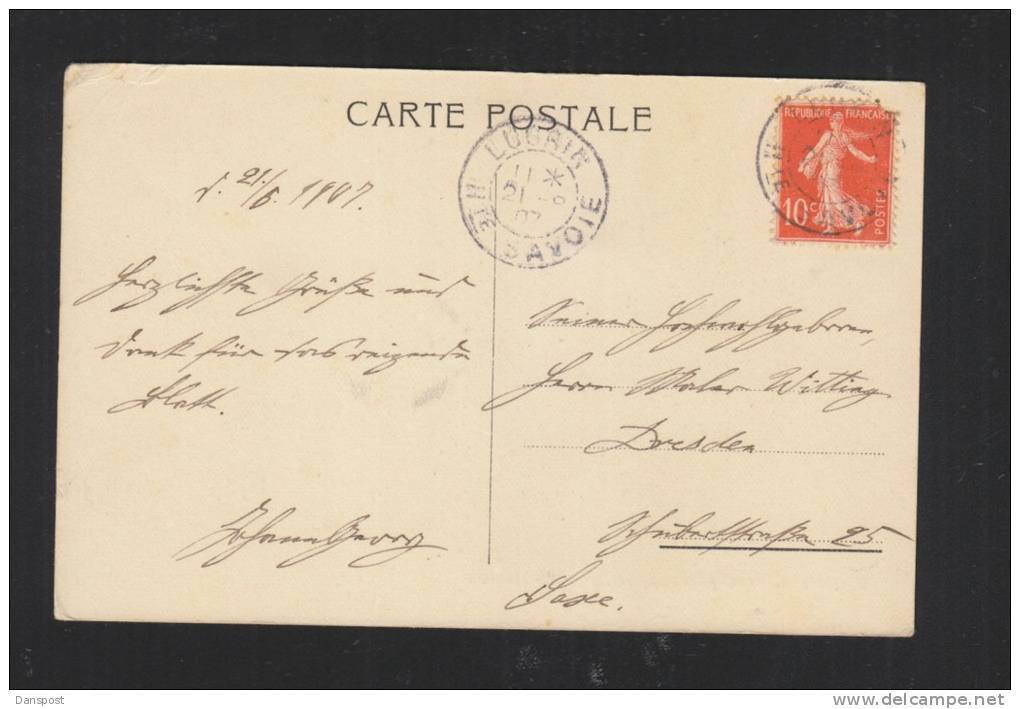 CARTE POSTALE
LUGRIN
11 *
21 - 6
07
HTE SAVOIE
REPUBLIQUE FRANÇAISE
10c
POSTES
HTE
d. 21./6. 1907.
Herzlichste Grüße und
Dank für das reizende
Blatt.
Johann Georg
Seiner Hochwohlgeboren,
Herrn Maler Witting
Dresden
Schubertstraße 25
Saxe.
Danspost
delcampe.net